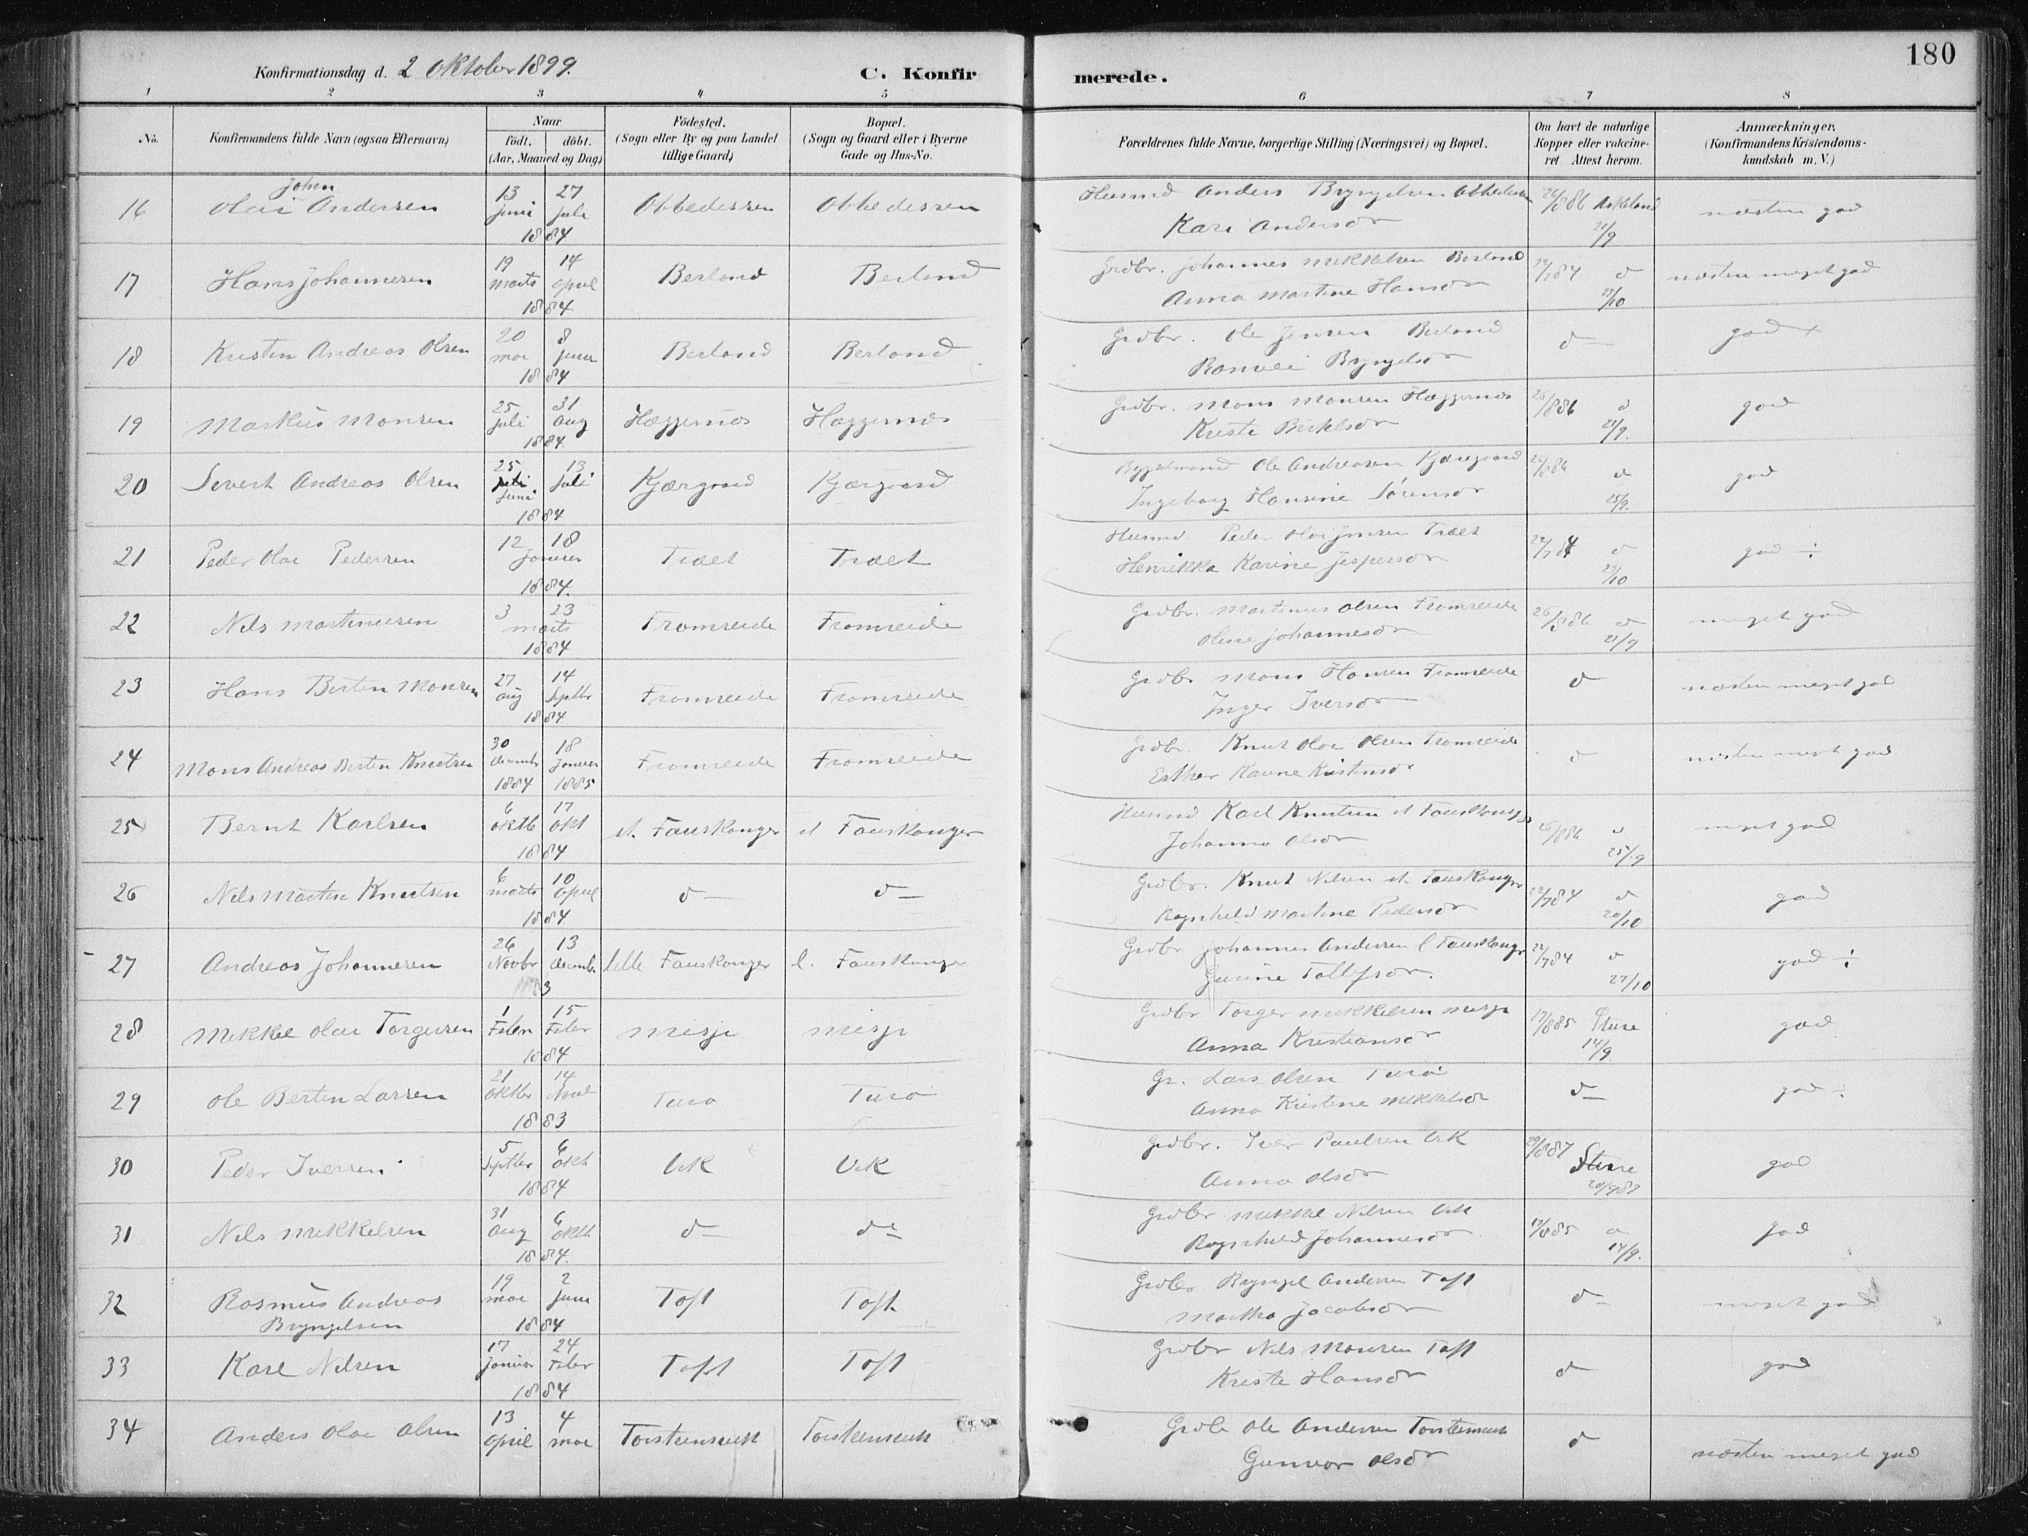 180
Konfirmationsdag d. 2 Oktober 1899. C. Konfirmerede.
1 2 3 4 5 6 7 8
No. Konfirmandens fulde Navn (ogsaa Efternavn) Naar født. døbt. (Aar, Maaned og Dag) Fødested. (Sogn eller By og paa Landet tillige Gaard) Bopæl. (Sogn og Gaard eller i Byerne Gade og Hus-No. Forældrenes fulde Navne, borgerlige Stilling (Næringsvei) og Bopæl. Om havt de naturlige Kopper eller vaccineret Attest herom. Anmærkninger. (Konfirmandens Kristendomskundskab m. V.)
16 Johan Olai Andersen 13 juni 27 juli 1884 Obbedessen Obbedessen Husmd Anders Bryngelsen Kari Andersdr 26/8 86 Askeland 21/9 næsten god
17 Hans Johannesen 19 marts 14 april 1884 Berland Berland Grdbr. Johannes Mikkelsen Berland Anna Martine Hansdr d næsten meget god
18 Kristen Andreas Olsen 20 mai 8 juni 1884 Berland Berland Grdbr. Ole Jensen Berland Ranvei Bryngelsdr d god +
19 Markus Monsen 25 juli 31 aug 1884 Hæggernæs Hæggernæs Grdbr. Mons Monsen Hæggernæs Kristi d 21/9. god
20 Sivert Andreas Olsen 25 juni 13 juli 1884 Kjærgaard Kjærgaard Bygselmand Ole Andreasen Kjærgaard Ingeborg Hansine Sørensdr d 25/9. god
21 Peder Olai Pedersen 12 18 Januar 1884. Trædet Trædet Husmd. Peder Olai Jensen Henrikka Karine Jespersdr d god ÷
22 Nils Martinussen 3 23 marts 1884 Fromreide Fromreide Grdbr. Martinus Olsen Fromreide Oline Johannesdr d 21/9 meget god
23 Hans Berten Monsen 27 aug 14 Septbr 1884 Fromreide Fromreide Grdbr Mons Hansen Fromreide Inger Iversdr d næsten meget god
24 Mons Andreas Berten Knutsen 30 decemb. 1884 18 Januar 1885 Fromreide Fromreide Grdbr. Knut Olai Olsen Fromreide Esther Karine Kristensdr d næsten meget god
25 Bernt Karlsen 6 oktb 17 okt 1884 st. Fauskanger st Fauskanger Husmd Karl Knutsen st Fauskanger Johanna Olsdr d 25/9 meget god
26 Nils Martin Knutsen 6 marts 10 april 1884 d d Grdbr. Knut Nilsen st. Fauskanger Ragnhild Martine Pedersdr d god
27 Andreas Johannesen 26 Novbr 13 decemb. lille Fauskanger l. Fauskanger Grdbr Johannes Andersen l Fauskanger Gurine d 27/10 god ÷
28 Mikkel Olai Torgersen 1 Febr 15 Febr 1884 Misje Misje Grdbr Torger Mikkelsen Misje Anna Kristiansdr 17/8 85 Sture 14/9. god
29 Ole Berten Larsen 21 oktbr 14 1883 Turø Turø Gr. Lars Olsen Turø Anna Kristine Mikkelsdr d god ÷
30 Peder Iversen 5 Septbr 6 okt 1884 Vik Vik Grdbr. Iver Paulsen Vik Anna Olsdr Sture god
31 Nils Mikkelsen 31 aug 6 oktb 1884. d d Grdbr Mikkel Nilsen Vik Ragnhild Johannesdr 17/8 85 d 14/9. god
32 Rasmus Andreas Bryngelsen 19 mai 2 juni 1884 Toft Toft. Grdbr Bryngel Andersen Toft Martha Jacobsdr d meget god
33 Karl Nilsen 17 Januar 24 Febr 1884 Toft Toft Grdbr Nils Monsen Toft Kristi Hansdr d god
34 Anders Olai Olsen 13 april 4 mai Torsteinsvik Torsteinsvik Grdbr Ole Andersen Torsteinsvik Gunvor Olsdr d næsten meget god